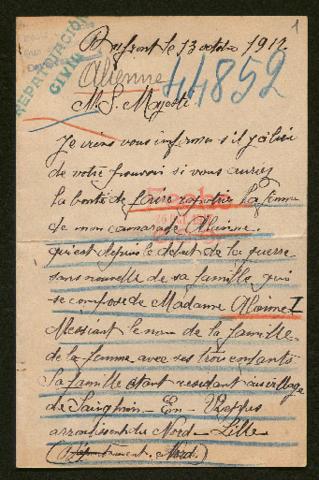 1
REPATRIACIÓN
CIVIL
Du front le 13 octobre 1917.
44852
A S. Majesté
Je viens vous informer s'il y a lieu
de votre pouvoir si vous auriez
la bonté de faire rapatrier la femme
de mon camarade
qui est depuis le début de la guerre
sans nouvelle de sa famille qui
se compose de Madame
Messiant le nom de la famille
de la femme avec ses trois enfants
Sa famille étant résidant au village
de Sainghin - En Weppes
arrondissement du Nord - Lille
(Département du Nord.)